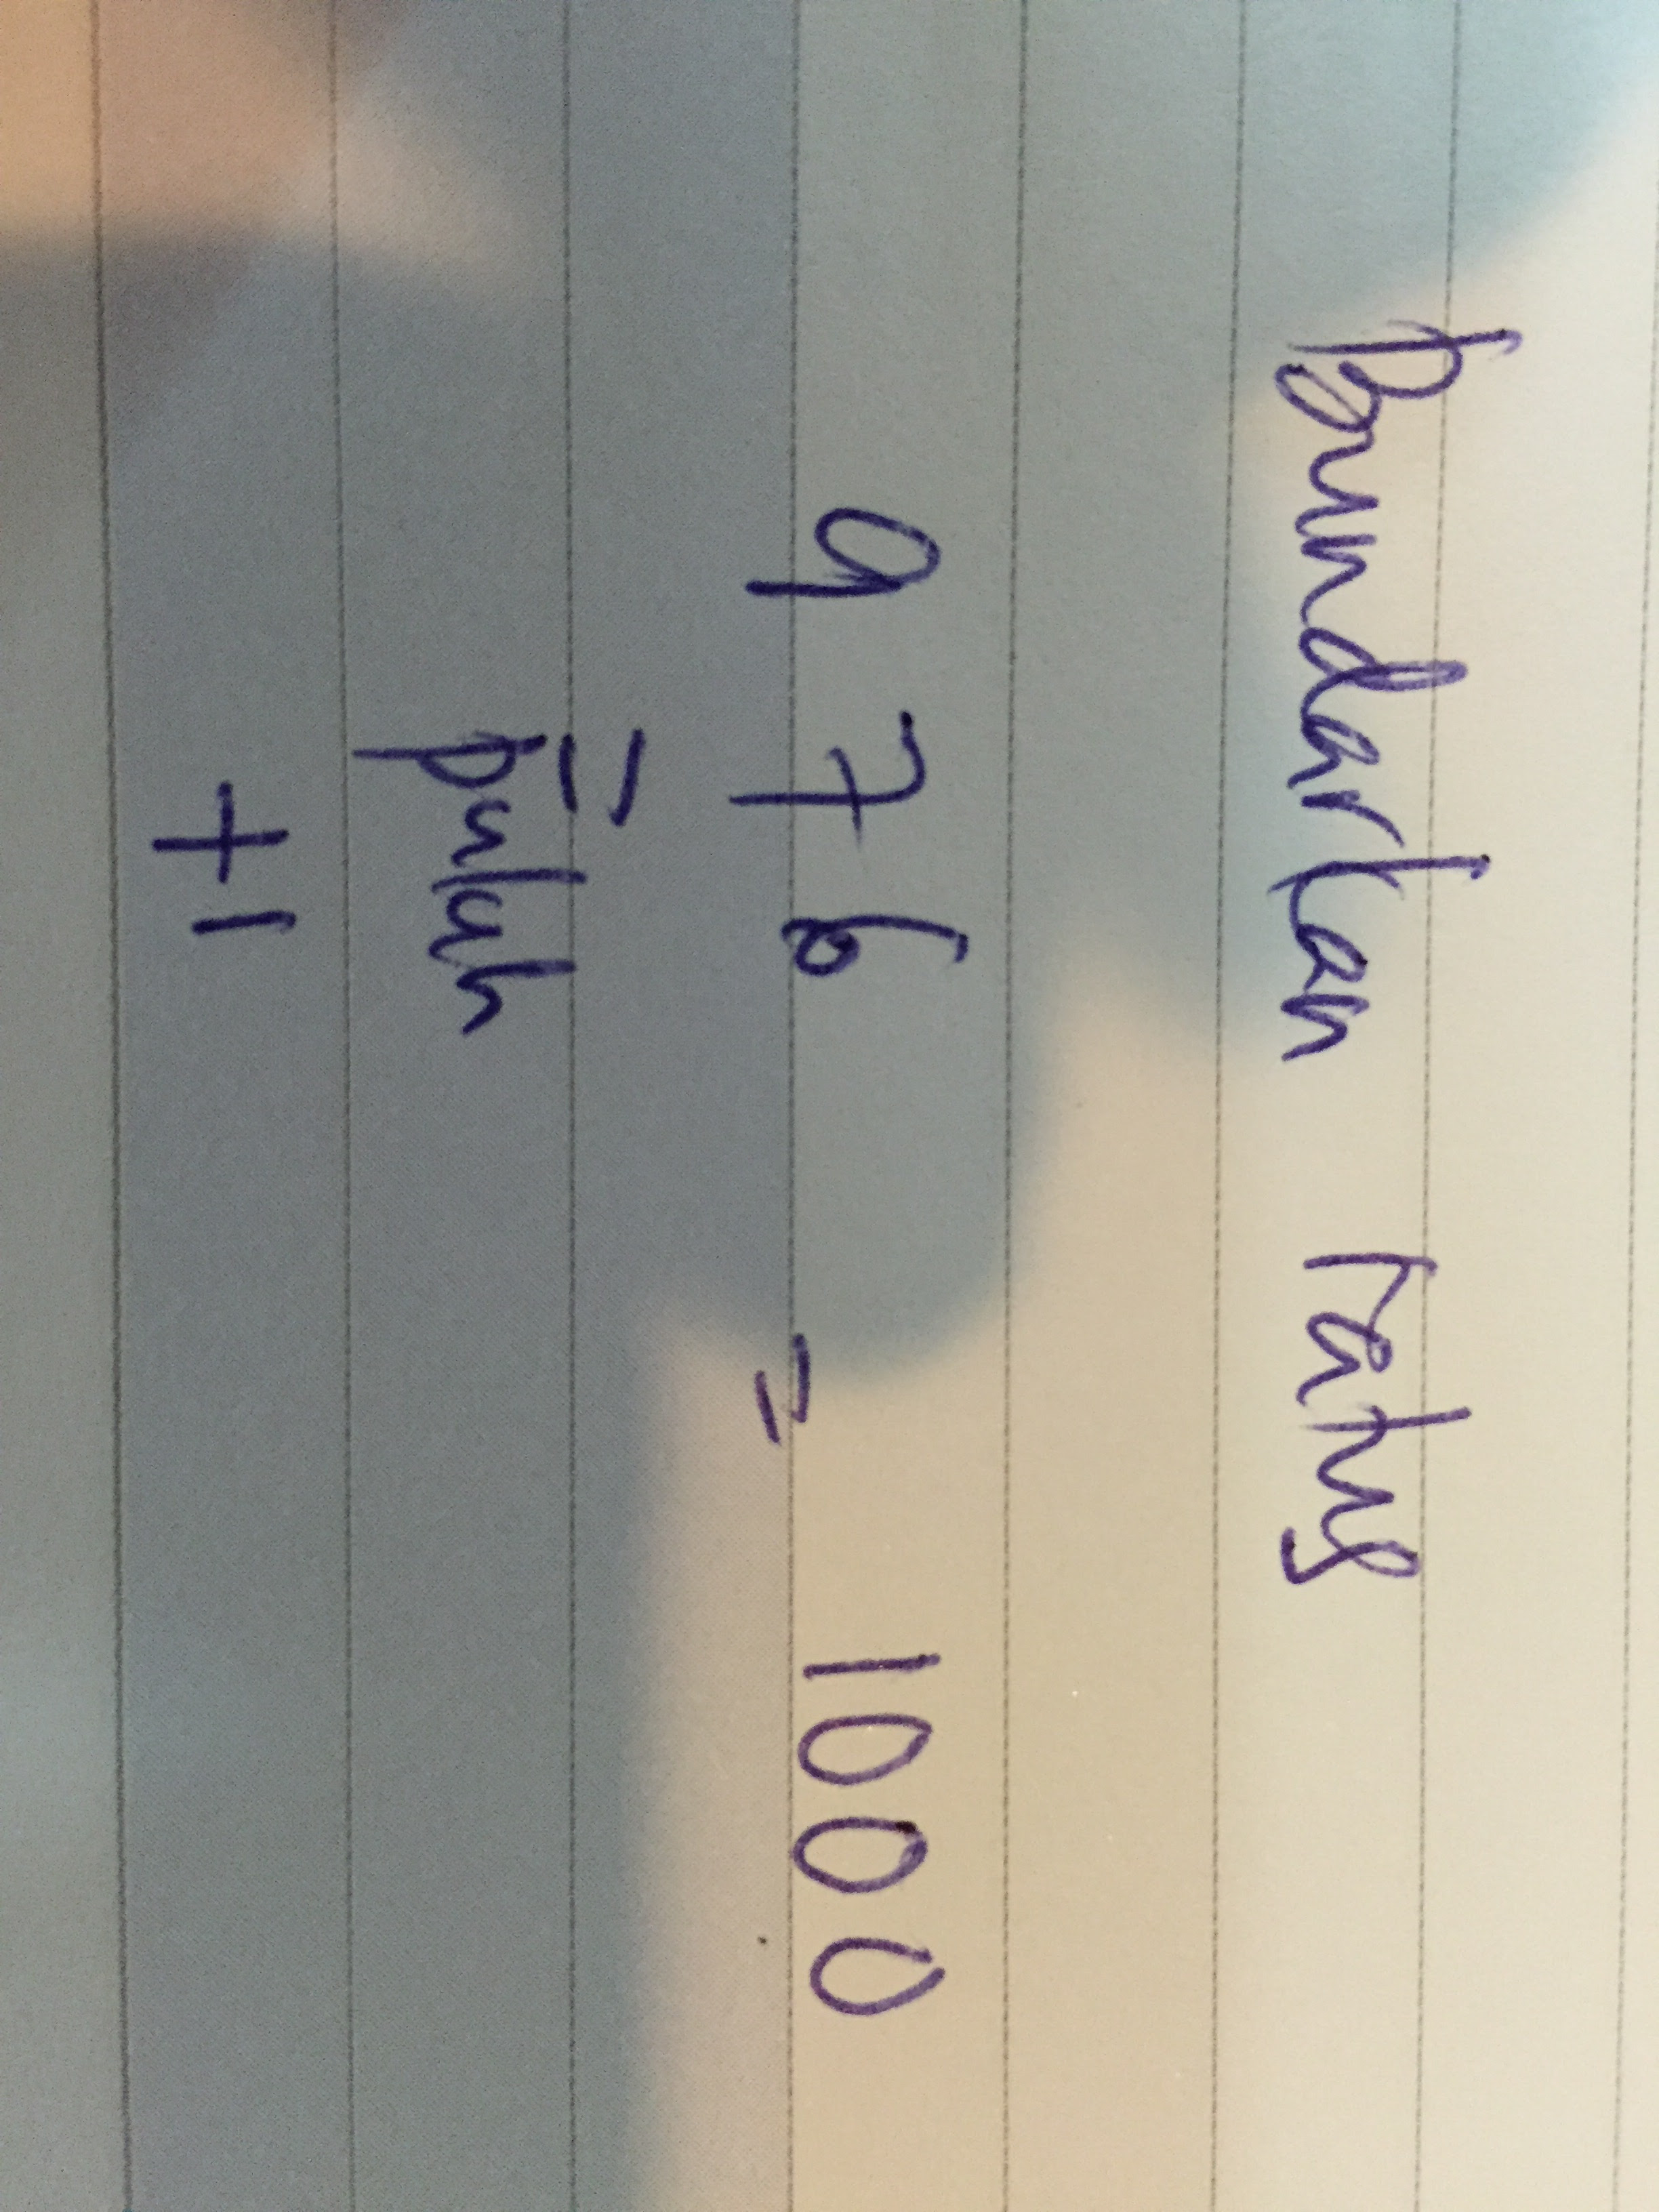 Bundarkan ratus
976 = 1000
=
puluh
+1